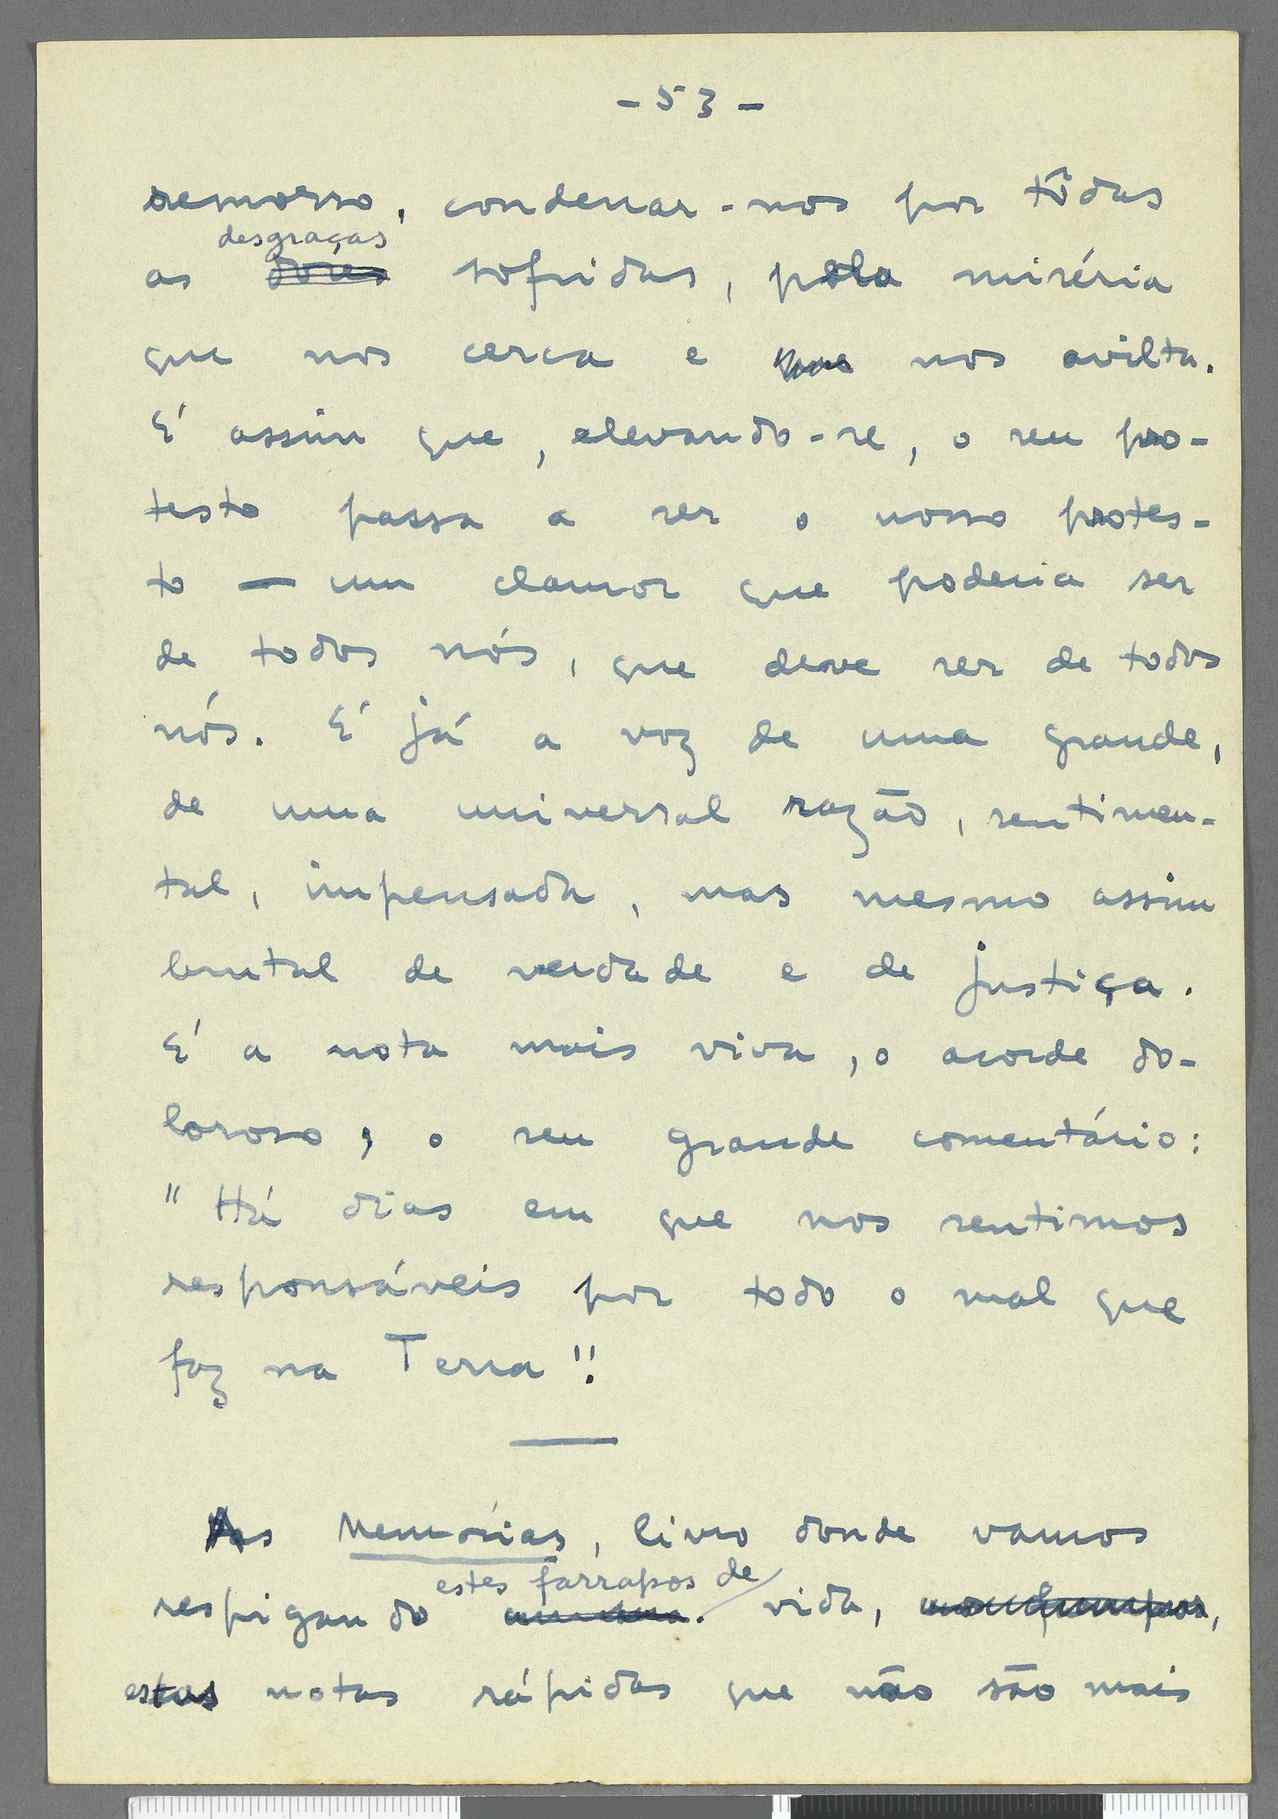 - 53 -
remorso, condenar-nos por tôdas
desgraças
as dores sofridas, pela miséria
que nos cerca e que nos avilta.
É assim que, elevando-se, o seu pro-
testo passa a ser o nosso protes-
to — um clamor que poderia ser
de todos nós, que deve ser de todos
nós. É já a voz de uma grande,
de uma universal razão, sentimen-
tal, impensada, mas mesmo assim
brutal de verdade e de justiça.
É a nota mais viva, o acorde do-
loroso, o seu grande comentário:
"Há dias em que nos sentimos
responsáveis por todo o mal que
faz na Terra"!
As Memórias, livro donde vamos
estes farrapos de
respigando vida,
estas notas rápidas que não são mais